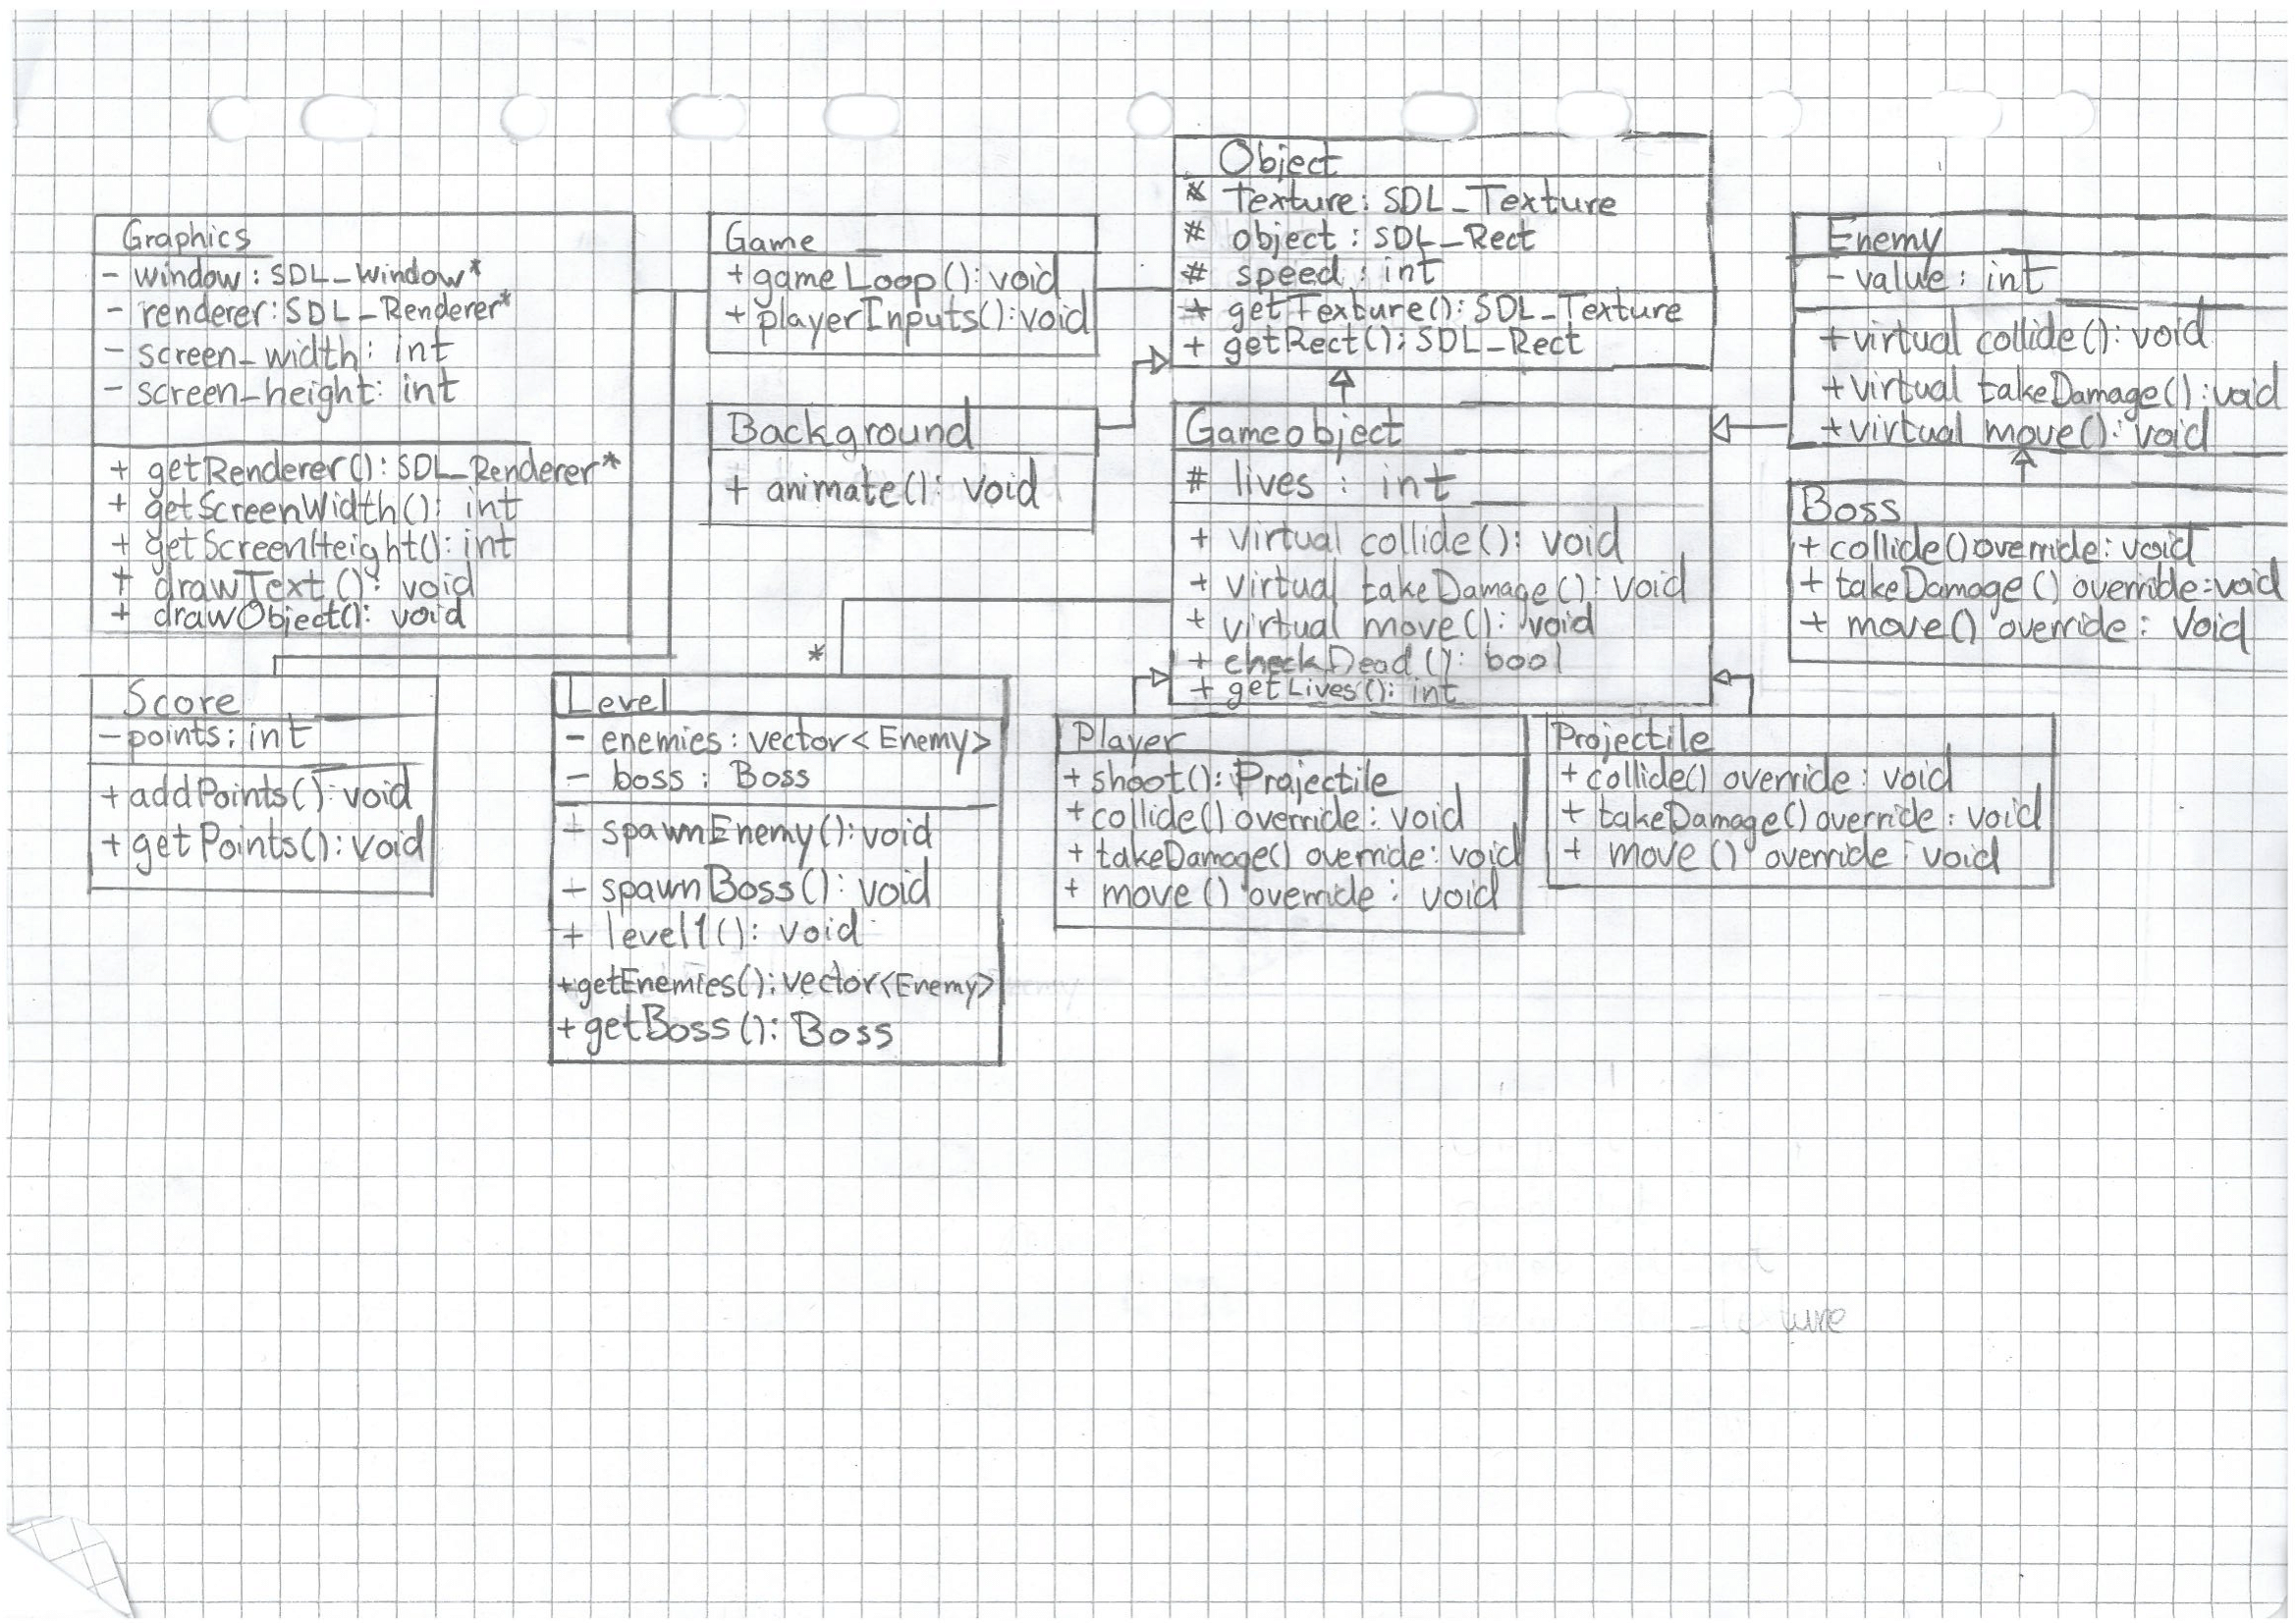 Graphics
- window: SDL_Window*
- renderer: SDL_Renderer*
- screen_width: int
- screen_height: int
+ getRenderer(): SDL_Renderer*
+ getScreenWidth(): int
+ getScreenHeight(): int
+ drawText(): void
+ drawObject(): void
Game
+ gameLoop(): void
+ playerInputs(): void
Background
+ animate(): void
Object
# Texture: SDL_Texture
# object: SDL_Rect
# speed: int
+ getTexture(): SDL_Texture
+ getRect(): SDL_Rect
Gameobject
# lives: int
+ virtual collide(): void
+ virtual takeDamage(): void
+ virtual move(): void
+ checkDead(): bool
+ getLives(): int
Enemy
- value: int
+ virtual collide(): void
+ virtual takeDamage(): void
+ virtual move(): void
Boss
+ collide() override: void
+ takeDamage() override: void
+ move() override: void
Score
- points: int
+ addPoints(): void
+ getPoints(): void
*
Level
- enemies: vector<Enemy>
- boss: Boss
+ spawnEnemy(): void
- spawnBoss(): void
+ level1(): void
+ getEnemies(): vector<Enemy>
+ getBoss(): Boss
Player
+ shoot(): Projectile
+ collide() override: void
+ takeDamage() override: void
+ move() override: void
Projectile
+ collide() override: void
+ takeDamage() override: void
+ move() override: void